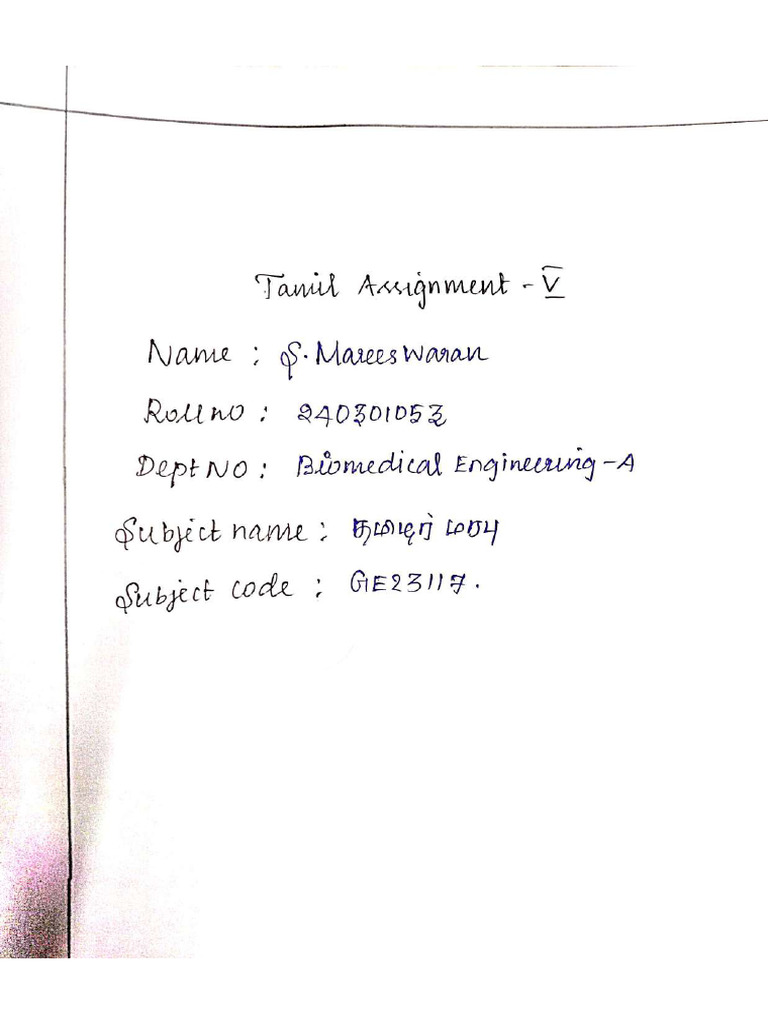 Tamil Assignment - V
Name : S. Mareeswaran
Roll no : 240301053
Dept No : Biomedical Engineering - A
Subject name : தமிழர் மரபு
Subject code : GE23117.